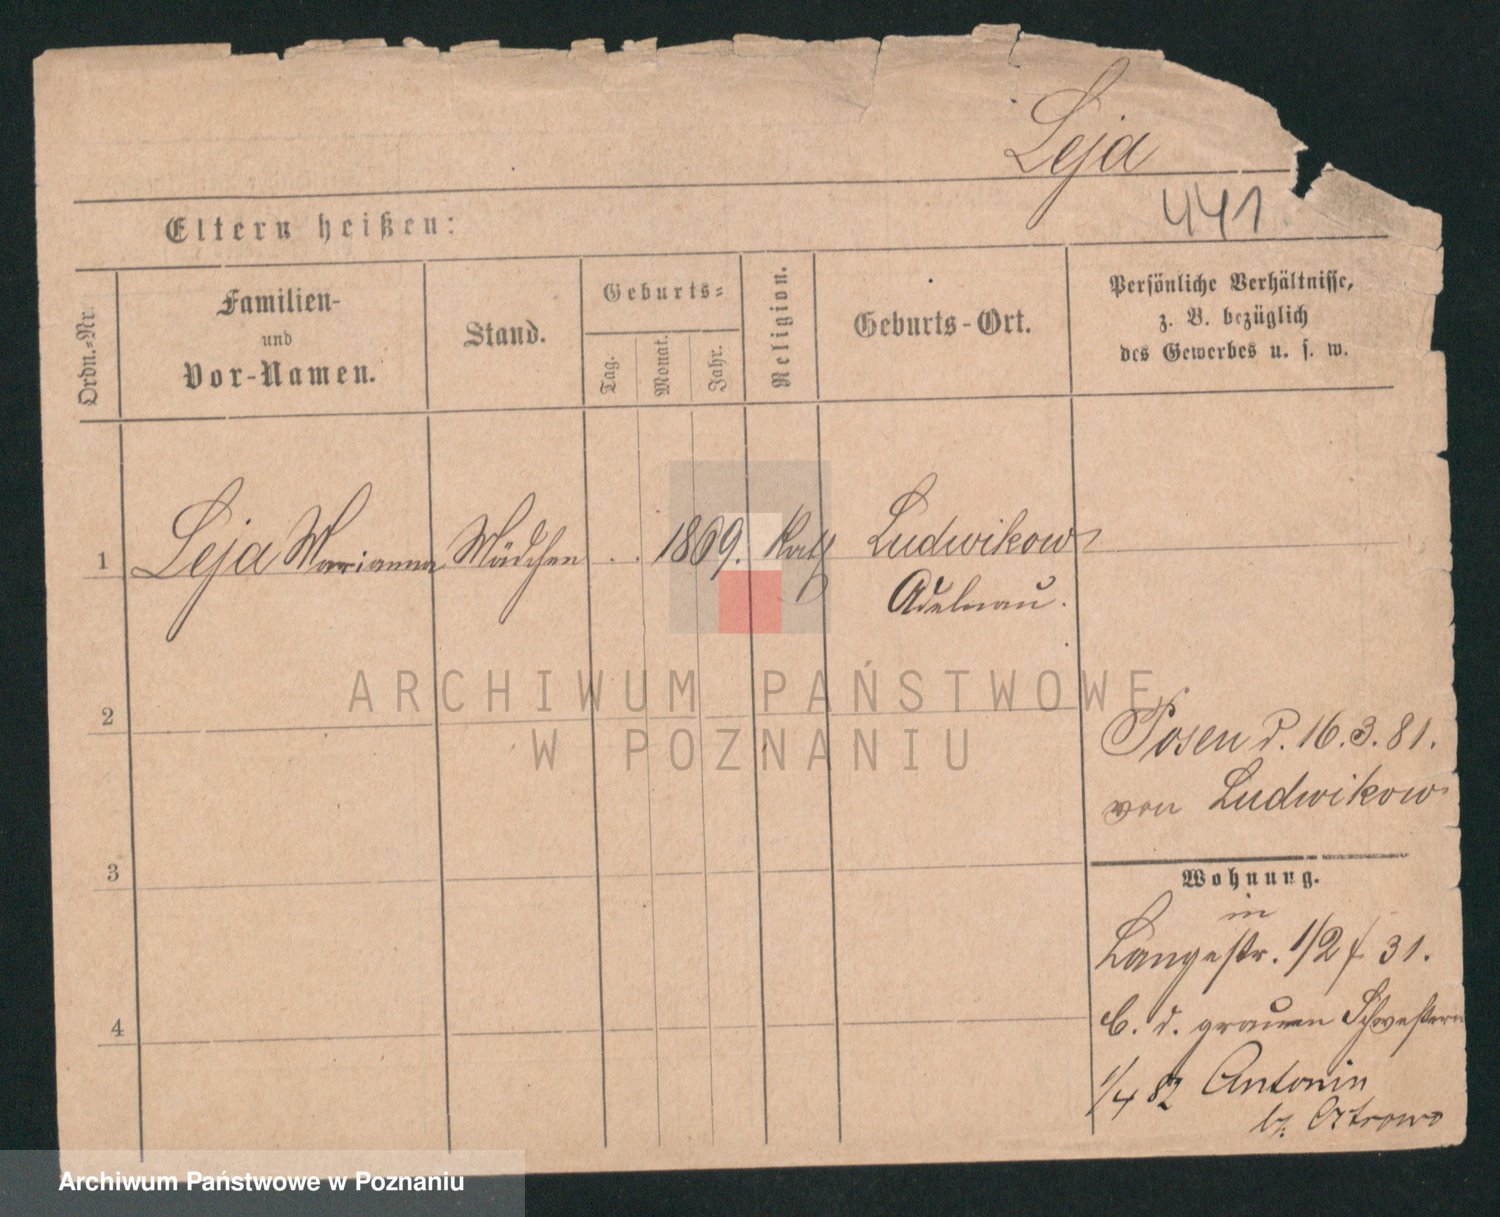 Leja
441
Eltern heißen:
Ordn.-Nr.
Familien-
und
Vor-Namen.
Stand.
Geburts-
Tag.
Monat.
Jahr.
Religion.
Geburts-Ort.
Persönliche Verhältnisse,
z. B. bezüglich
des Gewerbes u. s. w.
1 Leja Marianna Mädchen . . 1869. Kath Ludwikowo
Adelnau.
2
3
4
Posen d. 16.3.81.
von Ludwikowo
Wohnung.
in
Langestr. 1/2 31.
b. d. grauen Schwestern
1/4 82 Antonin
bz. Ostrowo
ARCHIWUM PAŃSTWOWE
W POZNANIU
Archiwum Państwowe w Poznaniu